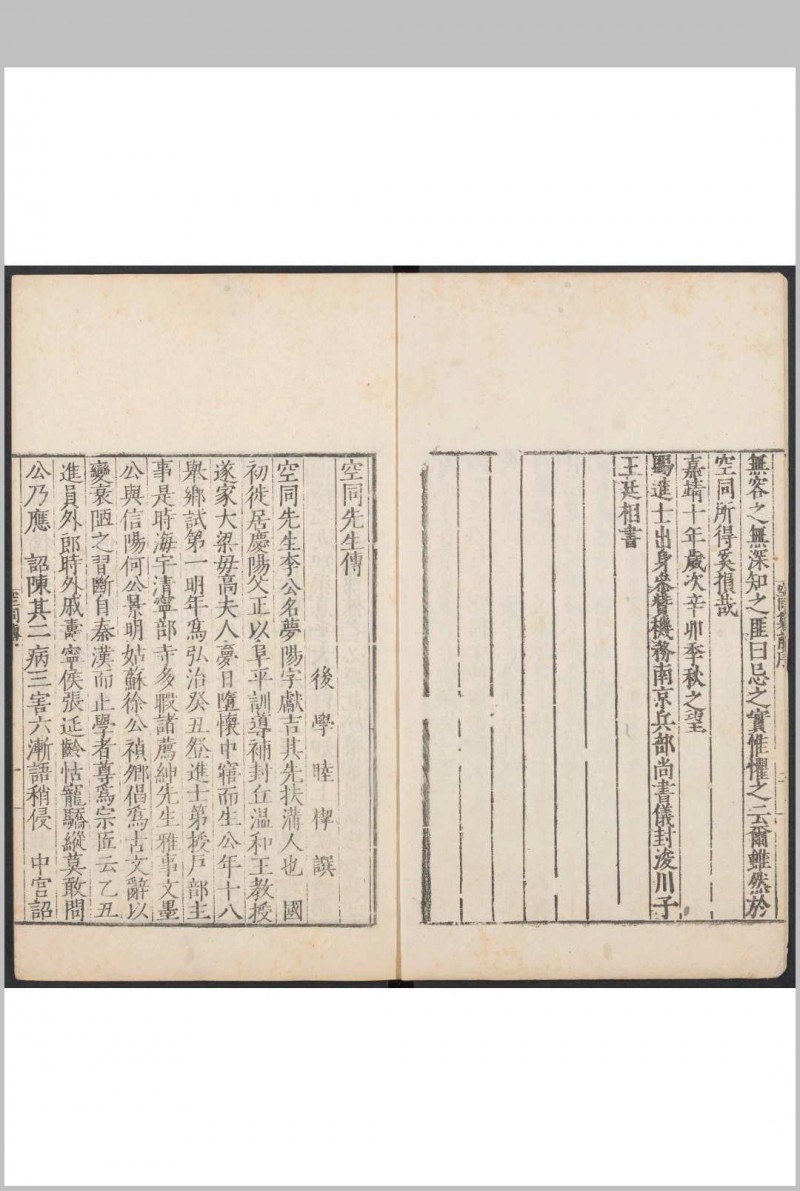 無容之無深知之匪曰忌之實惟懼之云爾雖然於
空同所得奚損哉
嘉靖十年歲次辛卯季秋之望
賜進士出身參贊機務南京兵部尚書儀封浚川子
王廷相書
空同先生傳
後學睦㮮譔
空同先生李公名夢陽字獻吉其先扶溝人也 國
初徙居慶陽父正以阜平訓導補封丘溫和王教授
遂家大梁母高夫人夢日墮懷中寤而生公年十八
舉鄉試第一明年爲弘治癸丑登進士第授戶部主
事是時海宇清寧部寺多暇諸薦紳先生雅事文墨
公與信陽何公景明姑蘇徐公禎卿倡爲古文辭以
變衰陋之習斷自秦漢而止學者尊爲宗匠云乙丑
進員外郎時外戚壽寧侯張延齡怙寵驕縱莫敢問
公乃應 詔陳其二病三害六漸語稍侵 中宫詔